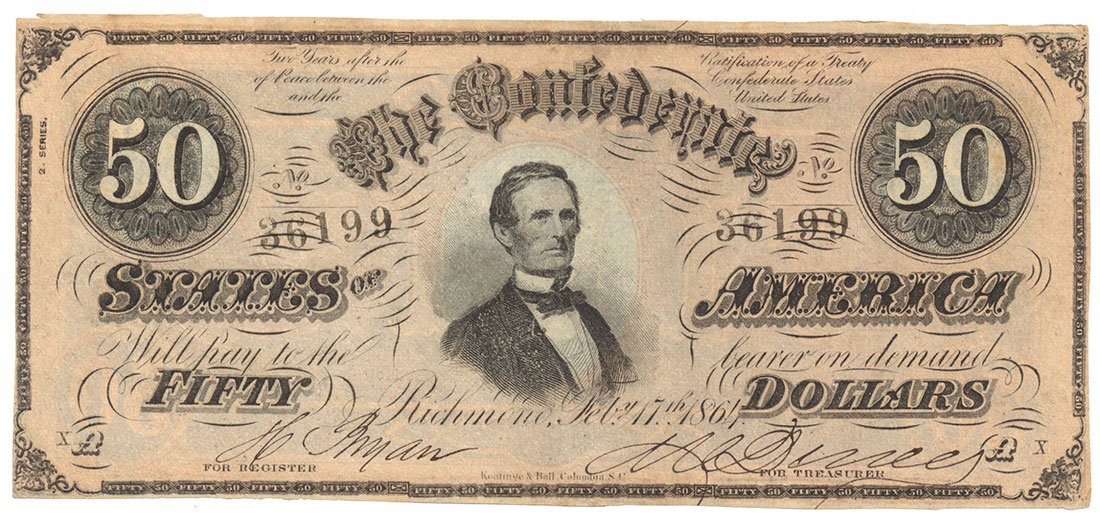 FIFTY 50 FIFTY 50 FIFTY 50 FIFTY 50 FIFTY 50 FIFTY 50 FIFTY 50 FIFTY 50
2. SERIES.
Two Years after the Ratification of a Treaty
of Peace between the Confederate States
and the United States
The Confederate
50 50
No. No.
36199 36199
STATES OF AMERICA
Will pay to the bearer on demand
FIFTY DOLLARS
Richmond, Feby. 17th. 1864
X A A X
FOR REGISTER FOR TREASURER
Keatinge & Ball, Columbia S.C.